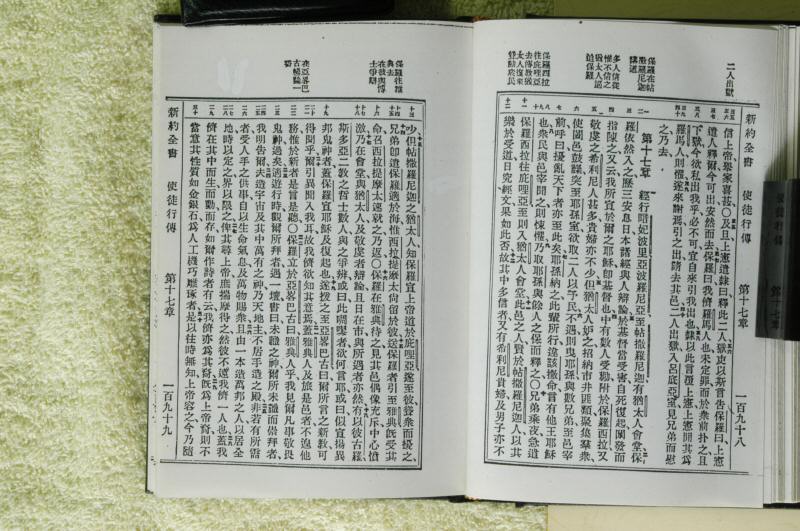 新約全書 使徒行傳 第十七章 一百九十八
二人出獄
保羅在帖
撒羅尼迦
講道
多人信從
保羅西拉
往庇哩亞
信上帝舉家喜甚○及旦上憲遣隸曰釋此二人獄吏以斯言告保羅曰上憲
遣人釋爾今可出安然而去保羅曰我儕羅馬人也未定罪而於衆前扑之且
下獄今欲私出我乎必不可宜自來引我出也隸以此言覆上憲上憲聞其爲
羅馬人則懼遂來謝焉引之出請去其邑二人出獄入呂底亞室見兄弟而慰
之乃去
第十七章 經行暗妃波里亞波羅尼亞至帖撒羅尼迦有猶太人會堂保
羅依然入之歷三安息日本諸經與人辯論於基督當受害自死復起闡發而
指陳之又云我所宣於爾之耶穌卽基督也中有數人受勸附於保羅西拉又
敬虔之希利尼人甚多貴婦亦不少但猶太人妒之招納市井匪類聚集羣衆
使闔邑鼓譟突至耶孫室欲取二人以予民不遇則曳耶孫與數兄弟至邑宰
前呼曰擾亂天下者亦至此矣耶孫納之此輩所行違該撒命言有他王耶穌
也衆民與邑宰聞之則悚懼乃取耶孫與餘人之保而釋之○兄弟乘夜急遣
保羅西拉往庇哩亞至則入猶太人會堂此邑之人賢於帖撒羅尼迦人以其
樂於受道日究經文果如此否故其中多信者又有希利尼貴婦及男子亦不
新約全書 使徒行傳 第十七章 一百九十九
保羅往雅
典去
在彼與博
士爭辯
在亞畧巴
古講論
少但帖撒羅尼迦之猶太人知保羅宣上帝道於庇哩亞遂至彼聳衆而擾之
兄弟卽遣保羅適於海惟西拉提摩太尙留於彼送保羅者引至雅典旣受其
命召西拉提摩太速就之乃返○保羅在雅典待之見其邑偶像充斥中心憤
激乃在會堂與猶太人及敬虔者辯論且日在市與所遇者亦然有以彼古羅
斯多亞二敎之哲士數人與之爭辯或曰此啁噍者欲何言耶或曰似宣揚異
邦鬼神者蓋保羅宣耶穌及復起也遂援之至亞畧巴古曰爾所言之新敎可
得聞乎爾引異聞入我耳故我儕欲知其意焉蓋雅典人及旅是邑者不遑他
務惟於新者是言是聽○保羅立於亞畧巴古曰雅典人乎我見爾凡事敬畏
鬼神過矣適遊行時觀爾所拜者遇一壇書曰未識之神爾所未識而崇拜者
我明告爾夫造宇宙及其中萬有之神乃天地主不居手造之殿非若有所需
者受人手之供事自以生命氣息及萬物賜衆且由一本造萬邦之人以居全
地時以定之界以限之俾其尋上帝庶揣摩得之然彼不遠我儕一人也蓋我
儕在其中而生而動而存如爾作詩者有云我儕亦爲其裔旣爲上帝裔則不
當意其性質如金銀石爲人工機巧雕琢者是以往時無知上帝容之今乃隨